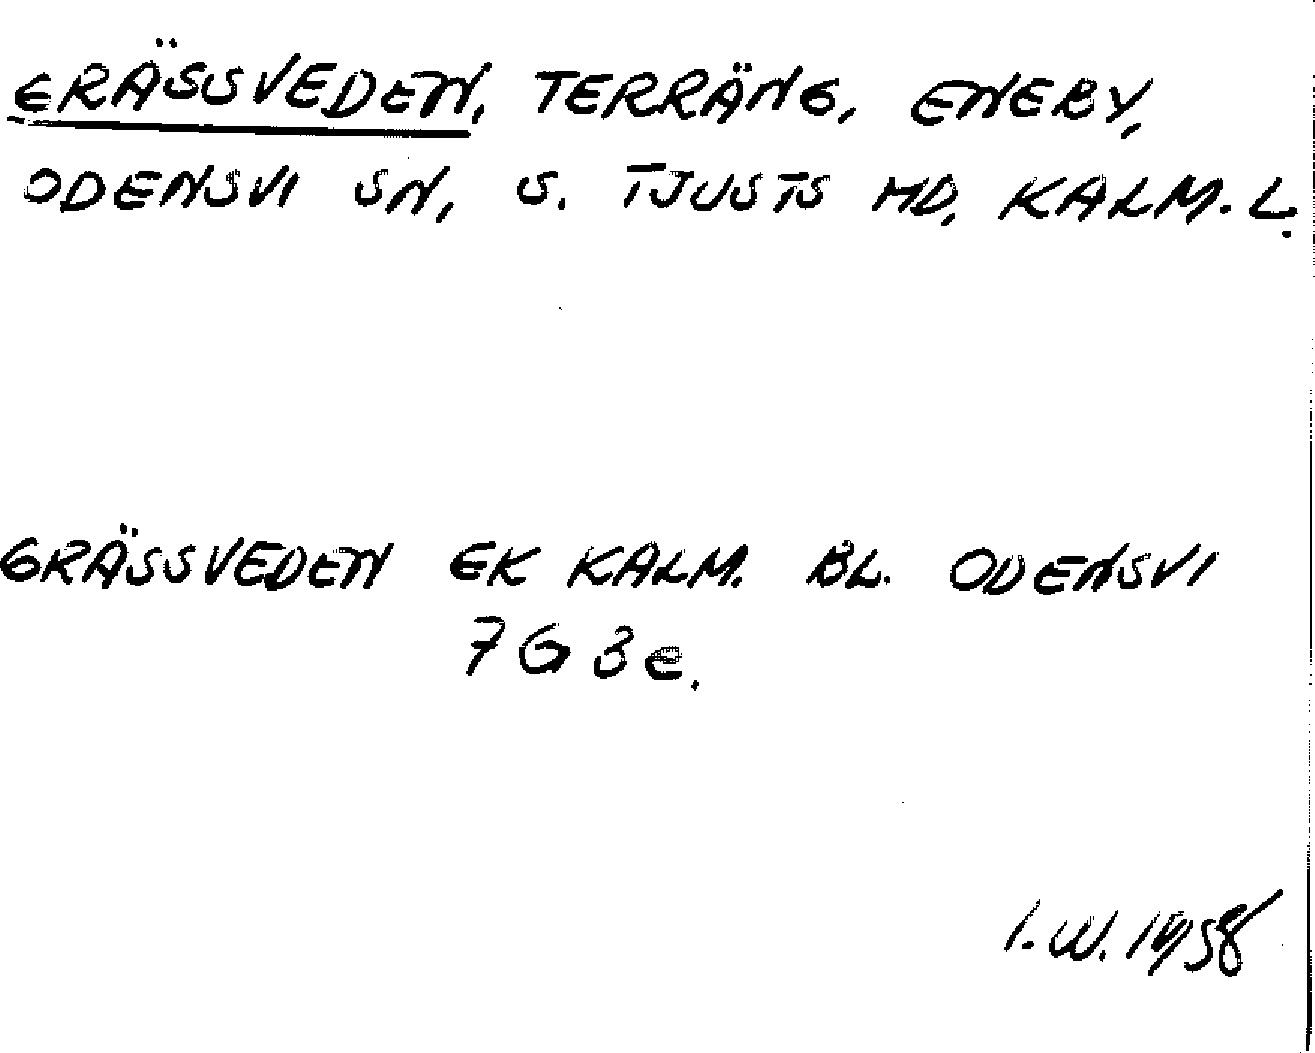 GRÄSSVEDEN, TERRÄNG, ENEBY,
ODENSVI SN, S. TJUSTS HD, KALM. L.
GRÄSSVEDEN EK KALM. BL. ODENSVI
7G 3e.
I.W. 1958